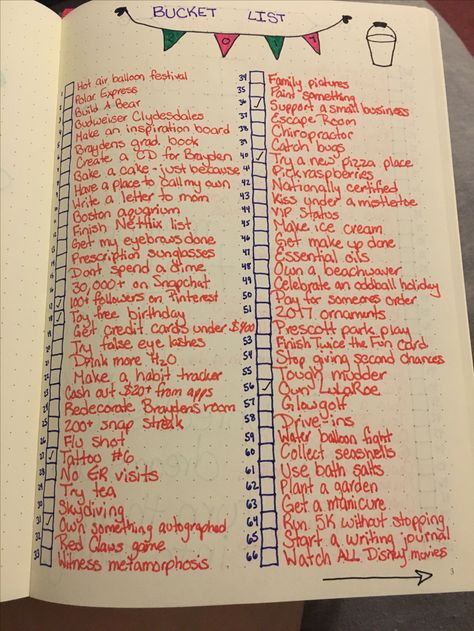 BUCKET LIST
2017
1 Hot air balloon festival
2 Polar Express
3 Build A Bear
4 Budweiser Clydesdales
5 Make an inspiration board
6 Braydens grad. book
7 Create a CD for Brayden
8 Bake a cake-just because
9 Have a place to call my own
10 Write a letter to mom
11 Boston aquarium
12 Finish Netflix list
13 Get my eyebrows done
14 Prescription sunglasses
15 Dont spend a dime
16 30,000+ on Snapchat
17 100+ followers on Pinterest
18 Toy free birthday
19 Get credit cards under $900
20 Try false eye lashes
21 Drink more H2O
22 Make a habit tracker
23 Cash out $20+ from apps
24 Redecorate Braydens room
25 200+ snap streak
26 Flu shot
27 Tattoo #6
28 No ER visits
29 Try tea
30 Skydiving
31 Own something autographed
32 Red Claws game
33 Witness metamorphosis
34 Family pictures
35 Paint something
36 Support a small business
37 Escape Room
38 Chiropractor
39 Catch bugs
40 Try a new pizza place
41 Pick raspberries
42 Nationally certified
43 Kiss under a mistletoe
44 VIP status
45 Make ice cream
46 Get make up done
47 Essential oils
48 Own a beachwaver
49 Celebrate an oddball holiday
50 Pay for someones order
51 2017 ornaments
52 Prescott park play
53 Finish Twice the Fun card
54 Stop giving second chances
55 Tough mudder
56 Own LulaRoe
57 Glowgolf
58 Drive-ins
59 Water balloon fight
60 Collect seashells
61 Use bath salts
62 Plant a garden
63 Get a manicure
64 Run 5K without stopping
65 Start a writing journal
66 Watch ALL Disney movies
3